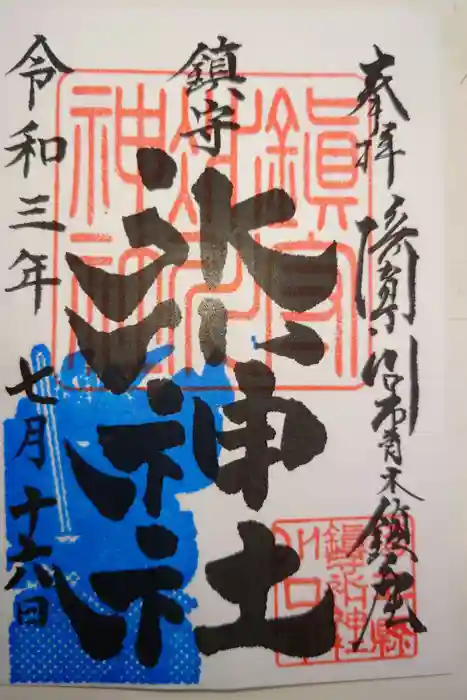 奉拝 埼玉県川口市青木鎮座
鎮守
氷川神社
令和三年七月十六日
鎮守
氷川
神社